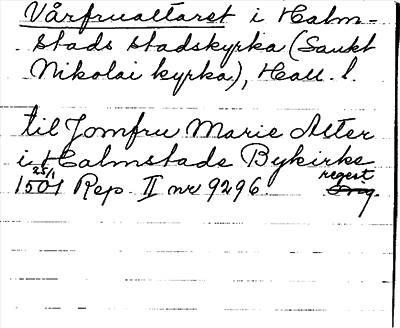 Vårfrualtaret i Halm-
stads stadskyrka (Sankt
Nikolai kyrka), Hall. l.
til Jomfru Marie Alter
i Halmstads Bykirke
25/1 regest
1501 Rep. II nr 9296.